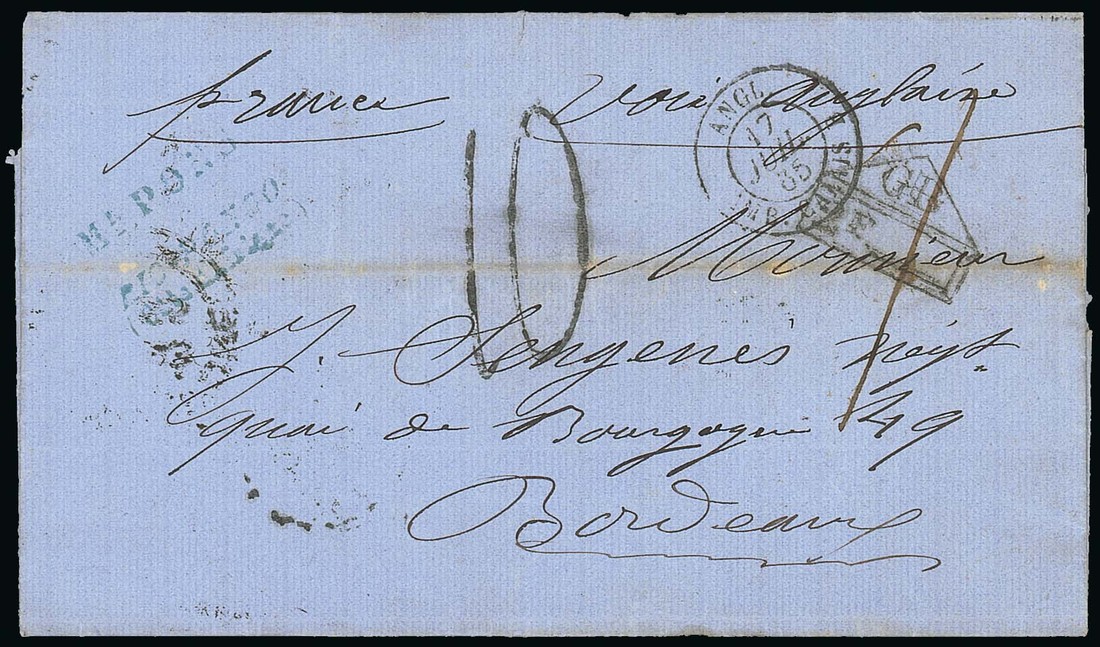 france voie anglaise
ANGL. 17 JUIL. 65 CALAIS
GB
10
Monsieur
J. Sengenes négt
quai de Bourgogne 49
Bordeaux